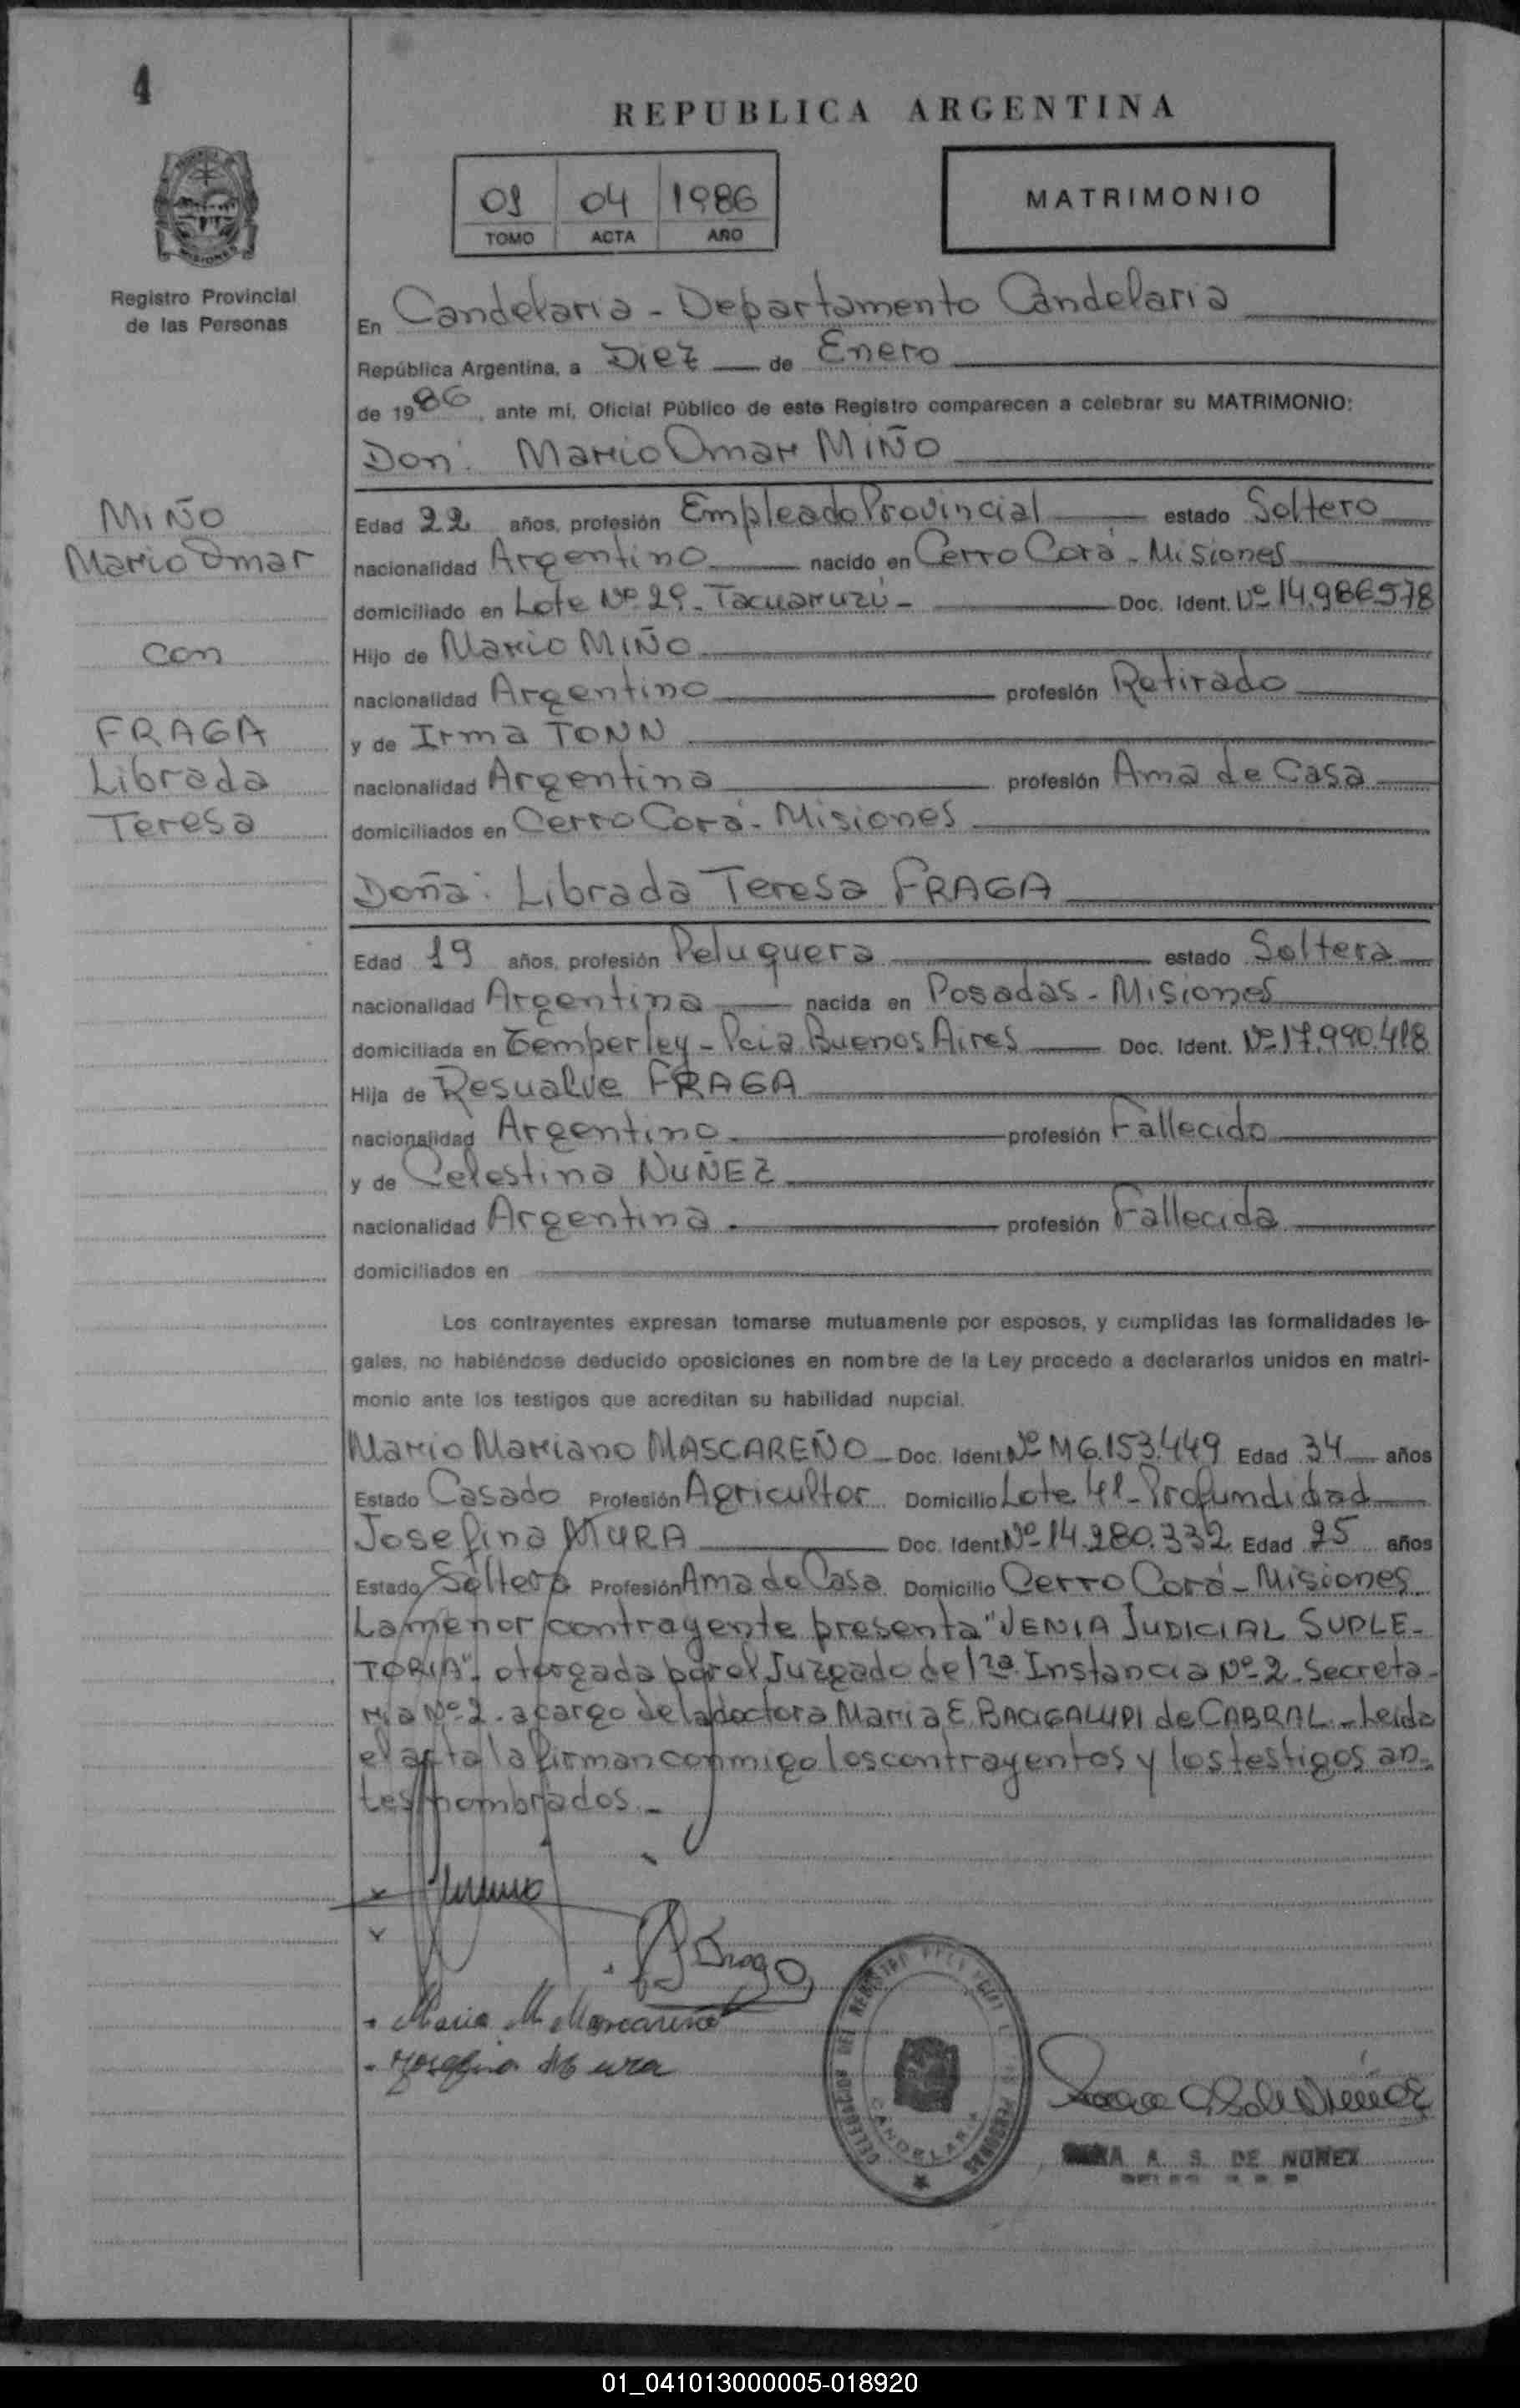 4
REPUBLICA ARGENTINA
01 04 1986
TOMO ACTA AÑO
MATRIMONIO
Registro Provincial
de las Personas
En Candelaria - Departamento Candelaria
República Argentina, a Diez de Enero
de 1986, ante mí, Oficial Público de este Registro comparecen a celebrar su MATRIMONIO:
Don: Mario Omar MIÑO
MIÑO
Mario Omar
con
FRAGA
Librada
Teresa
Edad 22 años, profesión Empleado Provincial estado Soltero
nacionalidad Argentino nacido en Cerro Corá - Misiones
domiciliado en Lote Nº 29 - Tacuaruzú - Doc. Ident. Nº 14.986.578
Hijo de Mario MIÑO
nacionalidad Argentino profesión Retirado
y de Irma TONN
nacionalidad Argentina profesión Ama de Casa
domiciliados en Cerro Corá - Misiones
Doña: Librada Teresa FRAGA
Edad 19 años, profesión Peluquera estado Soltera
nacionalidad Argentina nacida en Posadas - Misiones
domiciliada en Temperley - Pcia Buenos Aires Doc. Ident. Nº 17.990.418
Hija de Resualve FRAGA
nacionalidad Argentino profesión Fallecido
y de Celestina NUÑEZ
nacionalidad Argentina profesión Fallecida
domiciliados en
Los contrayentes expresan tomarse mutuamente por esposos, y cumplidas las formalidades le-
gales, no habiéndose deducido oposiciones en nombre de la Ley procedo a declararlos unidos en matri-
monio ante los testigos que acreditan su habilidad nupcial.
Mario Mariano MASCAREÑO Doc. Ident Nº M6.153.449 Edad 34 años
Estado Casado Profesión Agricultor Domicilio Lote 41 - Profundidad
Josefina MURA Doc. Ident Nº 14.280.332 Edad 25 años
Estado Soltera Profesión Ama de Casa Domicilio Cerro Corá - Misiones
La menor contrayente presenta "VENIA JUDICIAL SUPLE-
TORIA", otorgada por el Juzgado de 1ra Instancia Nº 2. Secreta-
ria Nº 2. a cargo de la doctora Maria E. BACIGALUPI de CABRAL. - Leída
el acta la firman conmigo los contrayentes y los testigos an-
tes nombrados. -
Fraga
Mario M Mascareño
Josefina Mura
DELEGACION DEL REGISTRO PERSONAS
CANDELARIA
A. S. DE NUÑEZ
01_041013000005-018920